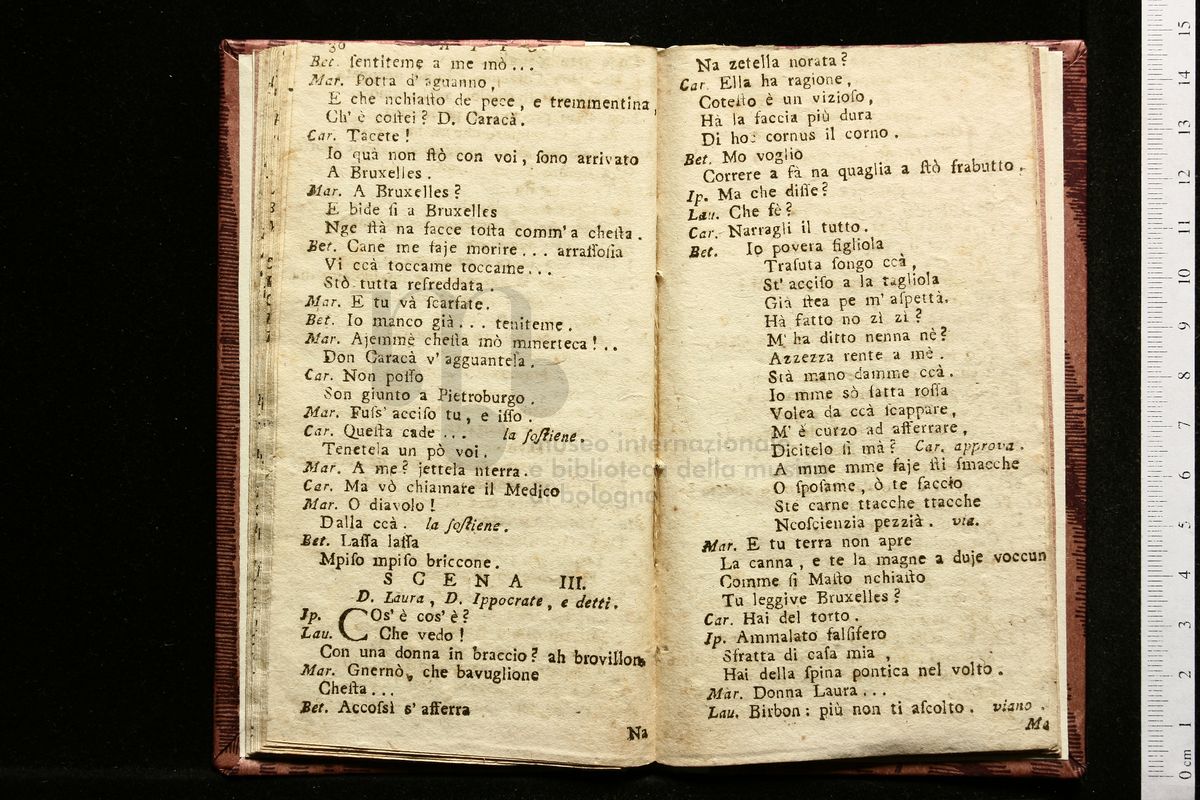 30 A T T O
Bet. ſentiteme a me mò...
Mar. Potta d' aguanno,
E che nchiaſto de pece, e tremmentina,
Ch' è coſtei? D. Caracà.
Car. Tacete!
Io quà non ſtò con voi, ſono arrivato
A Bruxelles.
Mar. A Bruxelles?
E bide ſi a Bruxelles
Nge ſtà na facce toſta comm' a cheſta.
Bet. Cane me faje morire... arraſſoſia
Vi ccà toccame toccame...
Stò tutta refreddata.
Mar. E tu và ſcarfate.
Bet. Io manco già... teniteme.
Mar. Ajemmè cheſta mò mmerteca!..
Don Caracà v' agguantela.
Car. Non poſſo
Son giunto a Pietroburgo.
Mar. Fuſs' acciſo tu, e iſſo.
Car. Queſta cade... la ſoſtiene.
Tenetela un pò voi.
Mar. A me? jettela nterra.
Car. Ma vò chiamare il Medico
Mar. O diavolo!
Dalla ccà. la ſoſtiene.
Bet. Laſſa laſſa
Mpiſo mpiſo briccone.
SCENA III.
D. Laura, D. Ippocrate, e detti.
Ip. COs' è cos' è?
Lau. Che vedo!
Con una donna in braccio? ah brovillon,
Mar. Gnernò, che bavuglione
Cheſta...
Bet. Accoſsì s' afferra
Na
Na zetella norata?
Car. Ella ha ragione,
Coteſto è un vizioſo,
Hà la faccia più dura
Di hoc cornus il corno.
Bet. Mo voglio
Correre a fà na quaglia a ſtò frabutto.
Ip. Ma che diſſe?
Lau. Che fè?
Car. Narragli il tutto.
Bet. Io povera figliola
Traſuta ſongo ccà,
St' acciſo a la tagliola
Già ſtea pe m' aſpettà.
Hà fatto no zì zì?
M' ha ditto nenna nè?
Azzezza rente a mè.
Stà mano damme ccà.
Io mme sò fatta roſſa
Volea da ccà ſcappare,
M' è curzo ad afferrare,
Dicitelo ſi mà? Car. approva.
A mme mme faje ſti ſmacche
O ſpoſame, ò te faccio
Ste carne ttacche ttacche
Ncoſcienzia pezzià. via.
Mar. E tu terra non apre
La canna, e te la magne a duje voccun
Comme ſi Maſto nchiaſto
Tu leggive Bruxelles?
Car. Hai del torto.
Ip. Ammalato falſifero
Sfratta di caſa mia,
Hai della ſpina pontica nel volto.
Mar. Donna Laura...
Lau. Birbon: più non ti aſcolto. viano.
Ma
museo internazionale
e biblioteca della mus
bologna
0 cm 1 2 3 4 5 6 7 8 9 10 11 12 13 14 15